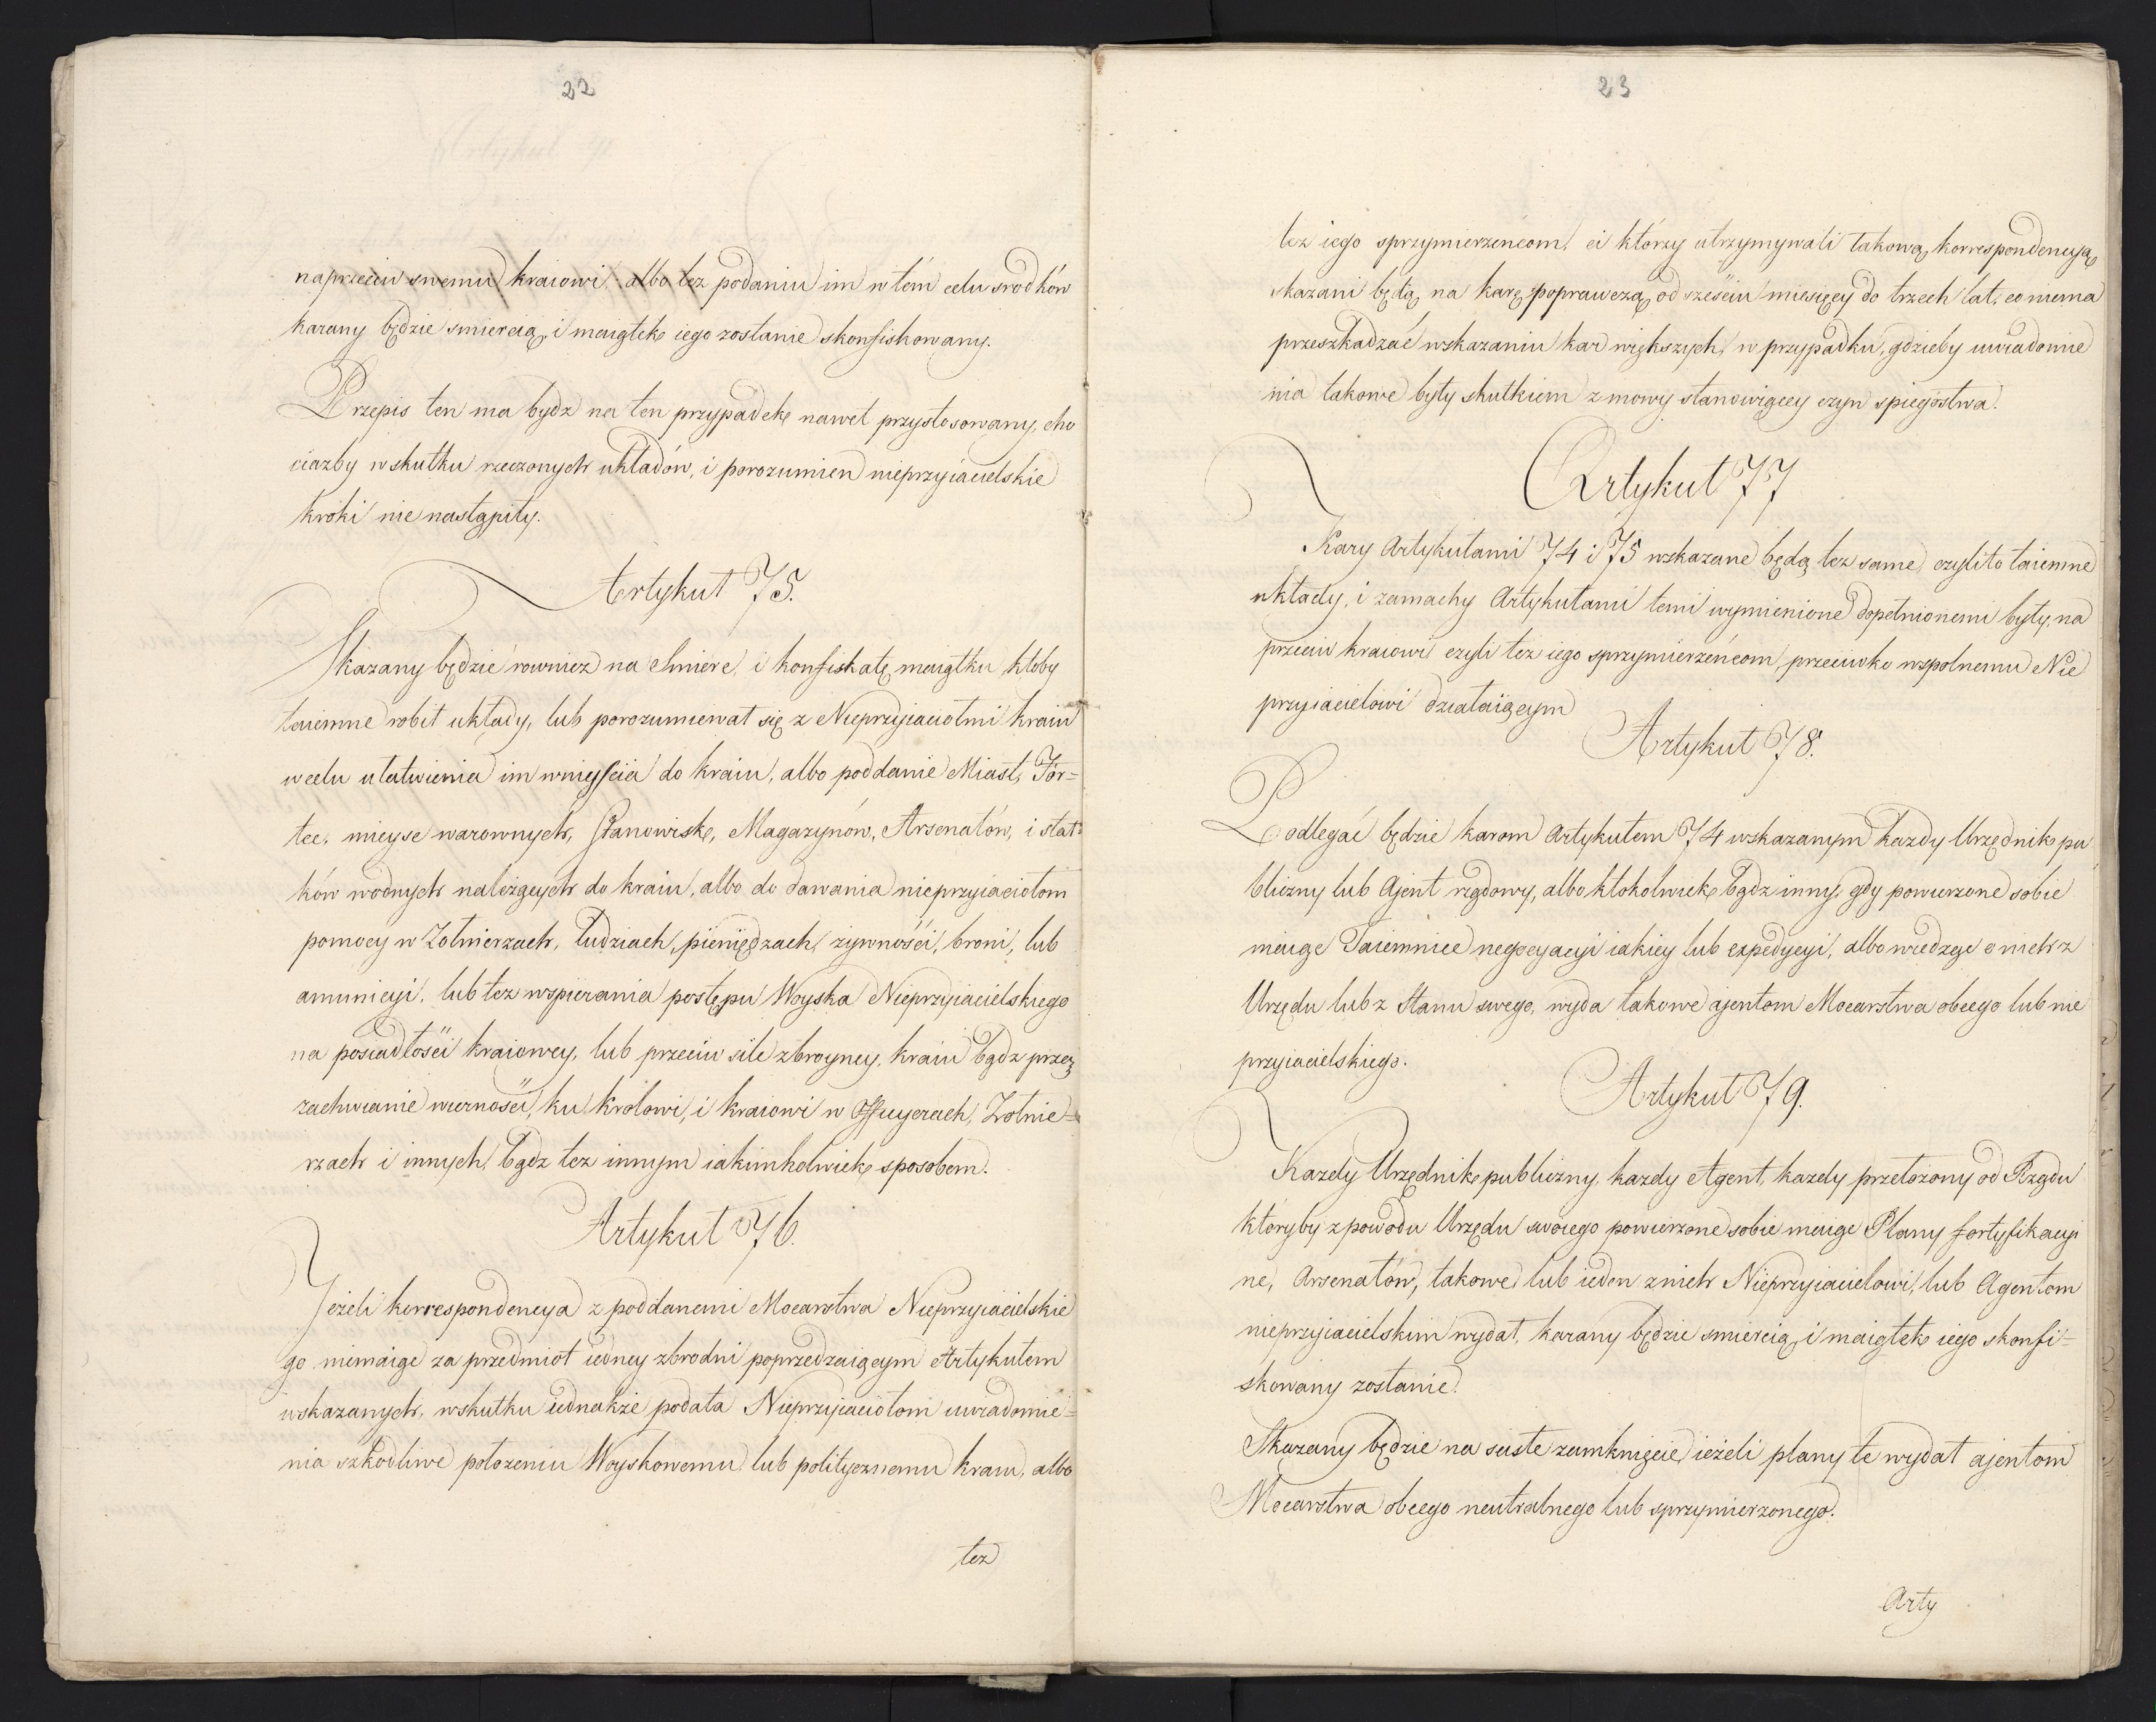 22
naprzeciw swemu kraiowi, albo tez podaniu im w tém celu srodków
karany będzie smiercią, i maiątek iego zostanie skonfiskowany.
Przepis ten ma bydz na ten przypadek nawet przystosowany, cho
ciazby w skutku rzeczonych układów, i porozumien nieprzyiacielskie
kroki nie nastąpiły.
Artykuł 75.
Skazany będzie rowniez na smierc, i konfiskatę maiątku ktoby
taiemne robił układy, lub porozumiewał się z Nieprzyiaciołmi kraiu
w celu ułatwienia im wniyscia do kraiu, albo poddanie Miast, For=
tec, mieysc warownych, stanowisk, Magazynów, Arsenałów, i stat
ków wodnych nalezących do kraiu, albo do dawania nieprzyiaciołom
pomocy w Zołnierzach, Ludziach, pieniędzach, zywności, broni, lub
amunicyi, lub tez wspierania postępu Woyska Nieprzyiacielskiego
na posiadłości kraiowey, lub przeciw sile zbroyney, kraiu bądz przez
zachwianie wierności, ku Królowi, i kraiowi w Officyerach, Zołnie=
rzach i innych, bądz tez innym iakimkolwiek sposobem.
Artykuł 76.
Jezeli korrespondencya z poddanemi Mocarstwa Nieprzyiacielskie
go niemaiąc za przedmiot iedney zbrodni poprzedzaiącym Artykułem
wskazanych, wskutku iednakze podała Nieprzyiaciołom uwiadomie=
nia szkodliwe połozeniu Woyskowemu lub politycznemu kraiu, albo
tez
23
tez iego sprzymierzeńcom, ci którzy utrzymywali takową korrespondencyą
skazani będą na karę poprawczą od sześciu miesięcy do trzech lat, co niema
przeszkadzać wskazaniu kar większych, w przypadku, gdzieby uwiadomie
nia takowe były skutkiem zmowy stanowiącey czyn spiegostwa.
Artykuł 77
Kary Artykułami 74 i 75 wskazane będą tez same, czylito taiemne
układy, i zamachy Artykułami temi wymienione dopełnionemi były, na
przeciw kraiowi czyli tez iego sprzymierzeńcom, przeciwko wspolnemu Nie
przyiacielowi działaiącym
Artykuł 78.
Podlegać będzie karom Artykułem 74 wskazanym kazdy Urzędnik pu
bliczny lub Ajent rządowy, albo ktokolwiek bądz inny, gdy powierzone sobie
maiąc Taiemnice negocyacyi iakiey lub expedycyi, albo wiedząc o nich z
Urzędu lub z Stanu swego, wyda takowe ajentom Mocarstwa obcego lub nie
przyiacielskiego.
Artykuł 79.
Kazdy Urzędnik publiczny, kazdy Agent, kazdy przełozony od Rządu
któryby z powodu Urzędu swoiego powierzone sobie maiąc Plany fortyfikacyi
ne, Arsenałów, takowe lub ieden znich Nieprzyiacielowi, lub Agentom
nieprzyiacielskim wydał, karany będzie smiercią, i maiątek iego skonfi=
skowany zostanie.
Skazany będzie na scisłe zamknięcie iezeli plany te wydał ajentom
Mocarstwa obcego neutralnego lub sprzymierzonego.
Arty